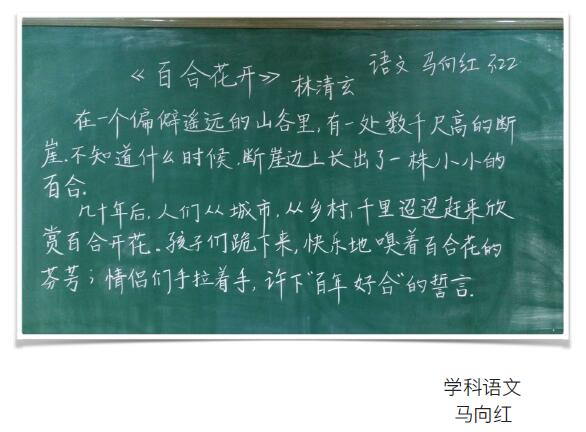 语文 马向红 322
《百合花开》 林清玄
在一个偏僻遥远的山谷里,有一处数千尺高的断
崖.不知道什么时候.断崖边上长出了一株小小的
百合.
几十年后,人们从城市,从乡村,千里迢迢赶来欣
赏百合开花。孩子们跪下来,快乐地嗅着百合花的
芬芳；情侣们手拉着手,许下"百年好合"的誓言.
学科语文
马向红